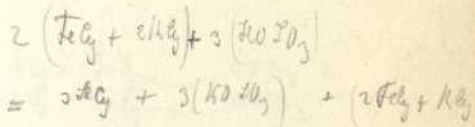 2 (FeCy + 2KCy) + 3 (HO SO₃)
= 3HCy + 3(KO SO₃) + (2FeCy + KCy